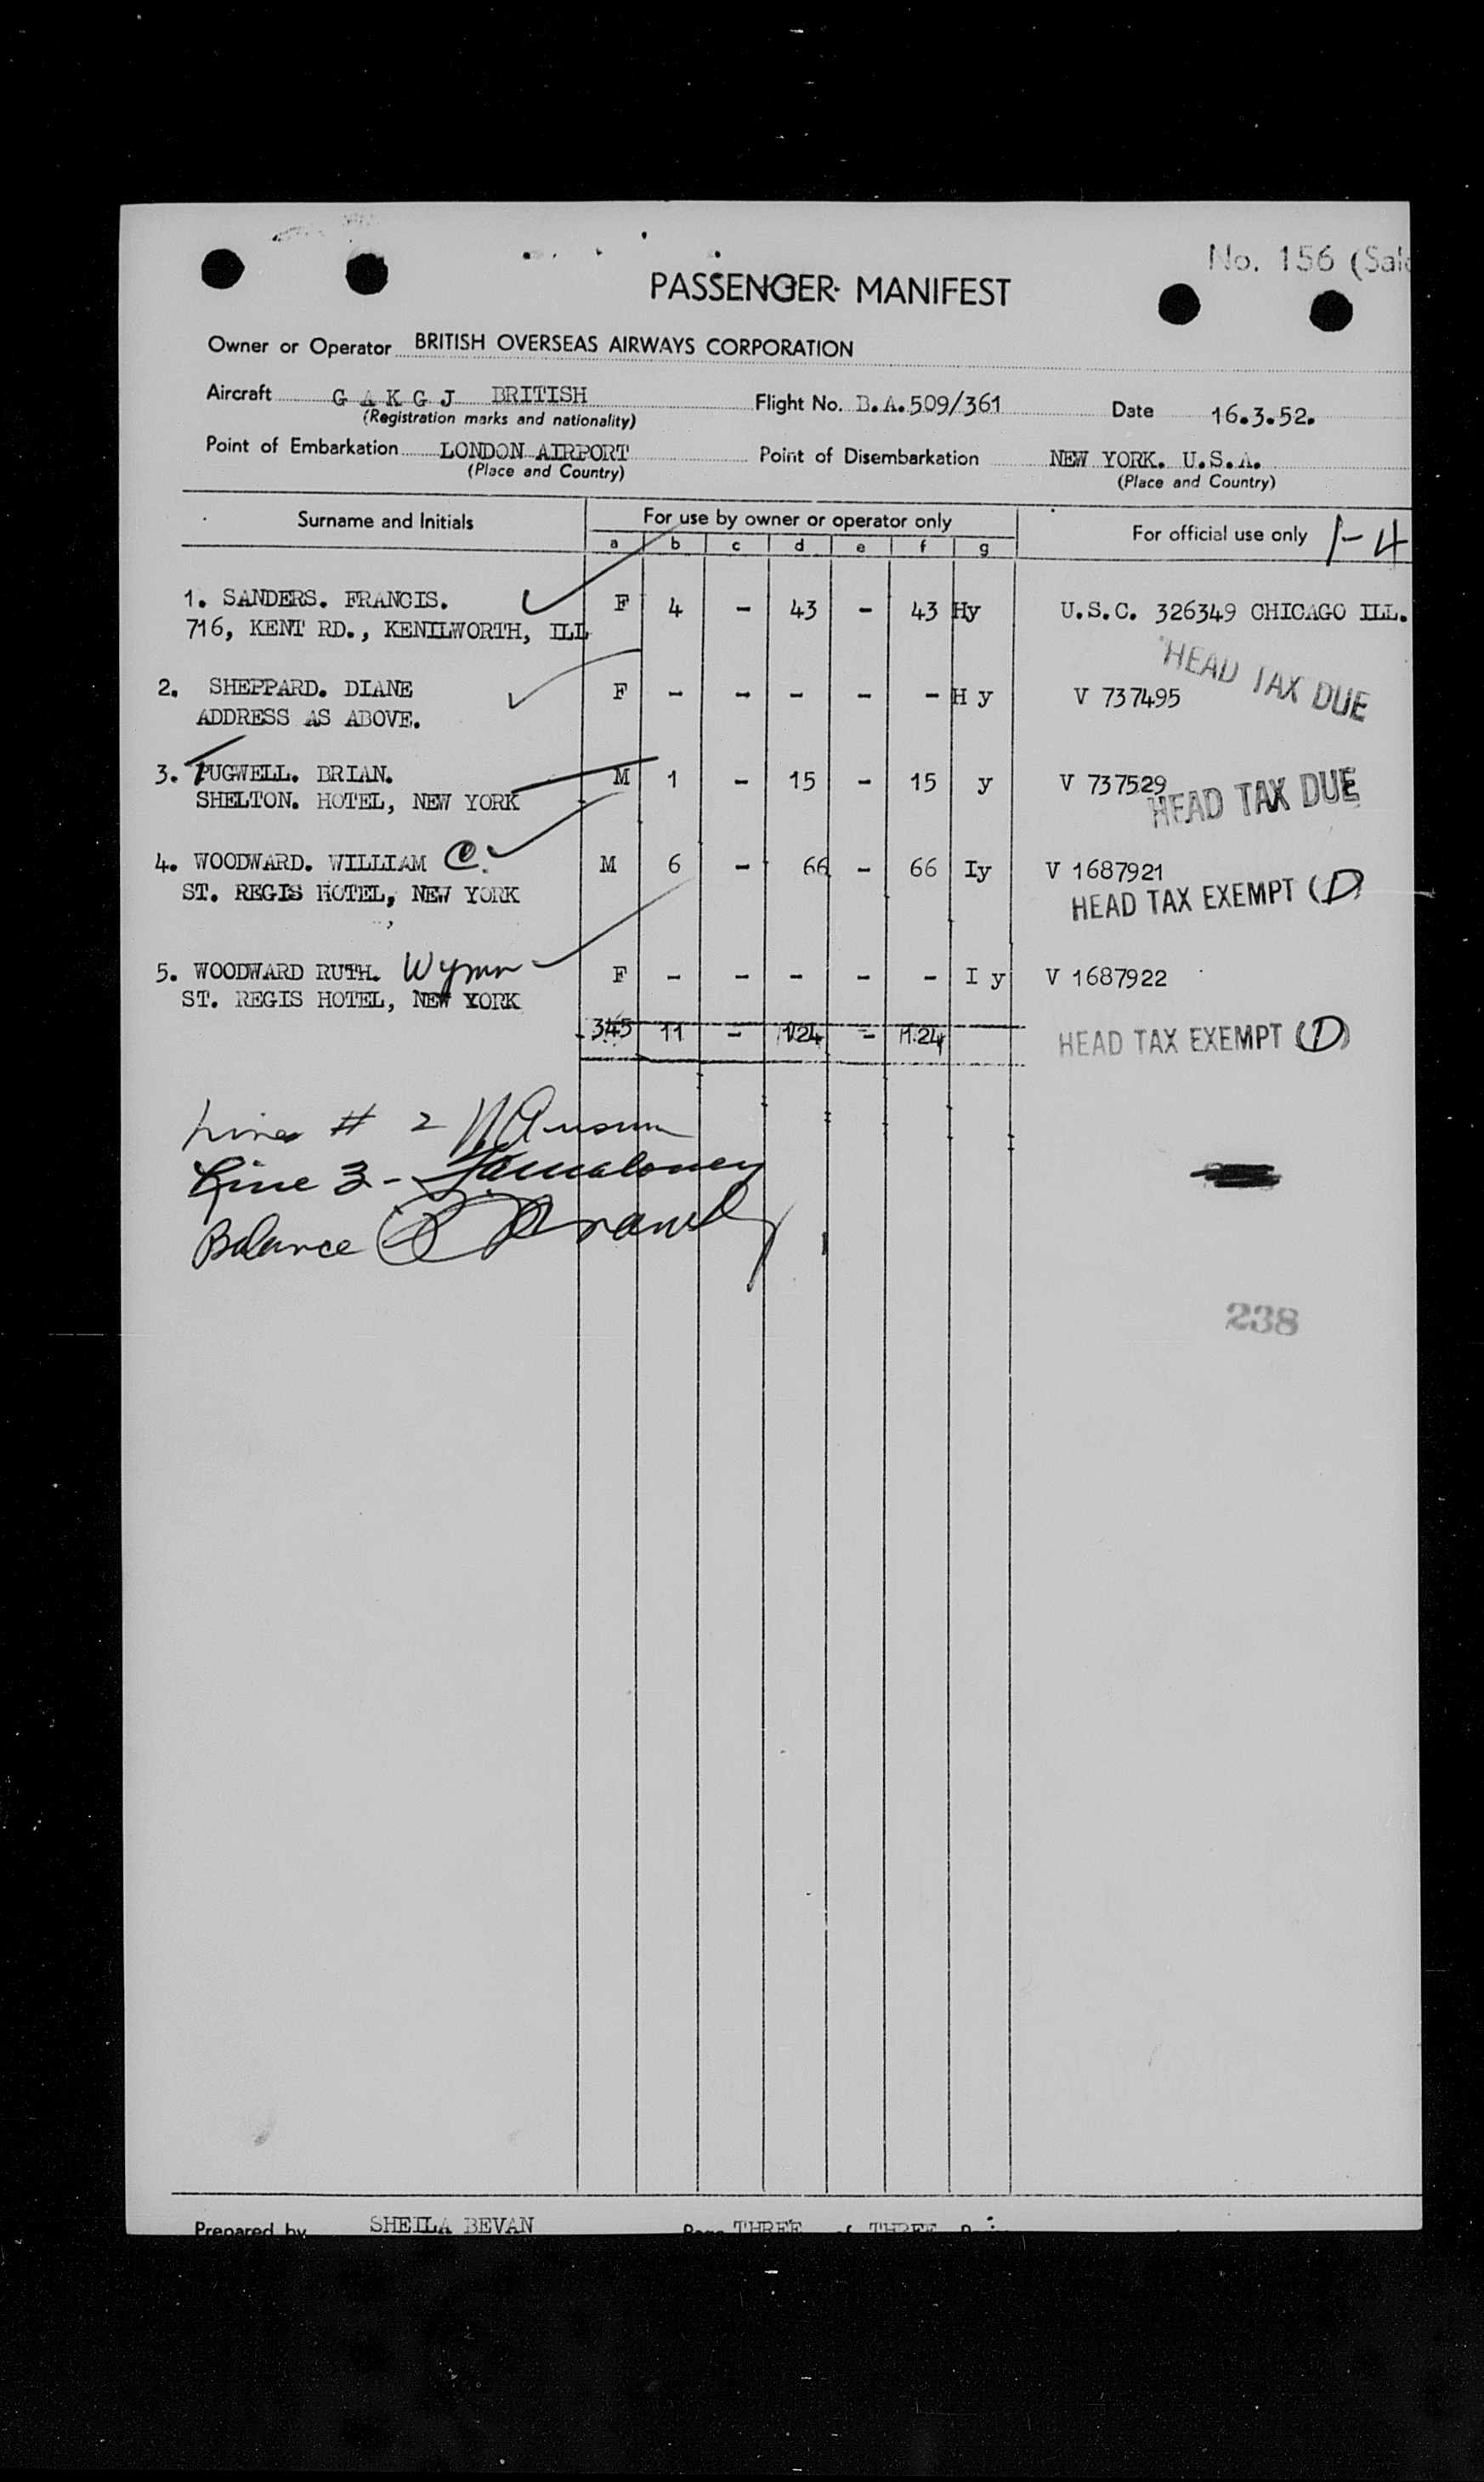 No. 156 (Sal
PASSENGER MANIFEST
Owner or Operator BRITISH OVERSEAS AIRWAYS CORPORATION
Aircraft G A K G J BRITISH Flight No. B.A.509/361 Date 16.3.52.
(Registration marks and nationality)
Point of Embarkation LONDON AIRPORT Point of Disembarkation NEW YORK. U.S.A.
(Place and Country) (Place and Country)
Surname and Initials For use by owner or operator only For official use only 1-4
a b c d e f g
1. SANDERS. FRANCIS. F 4 - 43 - 43 Hy U.S.C. 326349 CHICAGO ILL.
716, KENT RD., KENILWORTH, ILL
HEAD TAX DUE
2. SHEPPARD. DIANE F - - - - - H y V 737495
ADDRESS AS ABOVE.
3. PUGWELL. BRIAN. M 1 - 15 - 15 y V 737529
SHELTON. HOTEL, NEW YORK HEAD TAX DUE
4. WOODWARD. WILLIAM C. M 6 - 66 - 66 Iy V 1687921
ST. REGIS HOTEL, NEW YORK HEAD TAX EXEMPT (D)
5. WOODWARD RUTH. Wynn F - - - - - I y V 1687922
ST. REGIS HOTEL, NEW YORK
345 11 - 124 - 124 HEAD TAX EXEMPT (D)
Line # 2
Line 3 -
Balance
238
Prepared by SHEILA BEVAN Page THREE of THREE